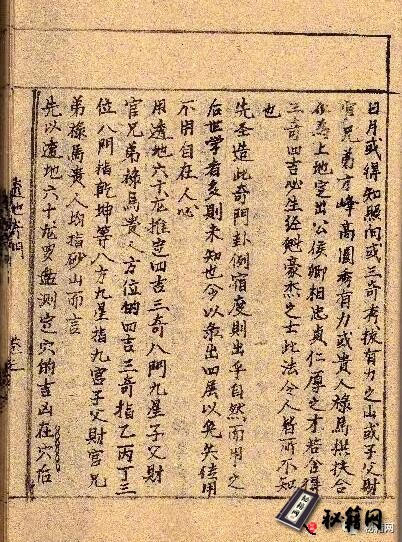 日月或得知照向或三奇考拔有力之山或子父財
官兄弟才峰高圆秀有力或貴人祿馬拱扶合
為上地定出公侯卿相忠貞仁厚之才若全得
三奇四吉必生经魁豪杰之士此法令人皆所不知
也
先圣造此奇門卦例宿度則出乎自然而用之
后世学者多則未知也今以余出四展以免失传用
不用自在人心
用透地六十龙推定四吉三奇八門九星子父財
官兄弟祿馬貴人方位納四吉三奇指乙丙丁三
位八門指乾坤等八方九星指九宫子父財官兄
弟祿馬貴人均指砂山而言
先以透地六十龙罗盤測定穴的吉凶在穴后
透地奇門
秘籍网